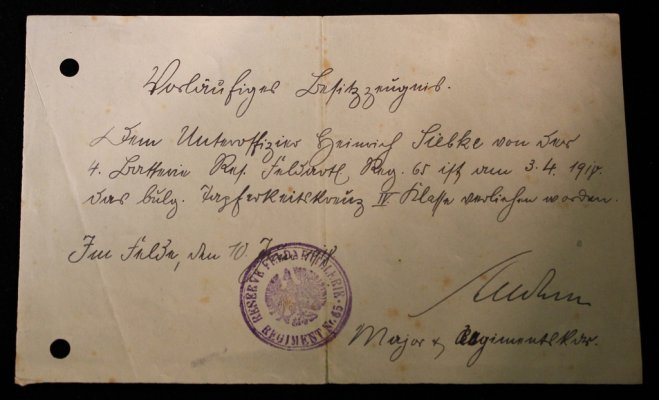 Vorläufiges Besitzzeugnis.
Dem Unteroffizier Heinrich Siebke von der
4. Batterie Res. Feldartl Reg. 65 ist am 3.4.1918.
das bulg. Tapferkeitskreuz IV Klasse verliehen worden.
Im Felde, den 10.
RESERVE FELDARTILLERIE-
REGIMENT Nr. 65
Major & Regimentskdr.